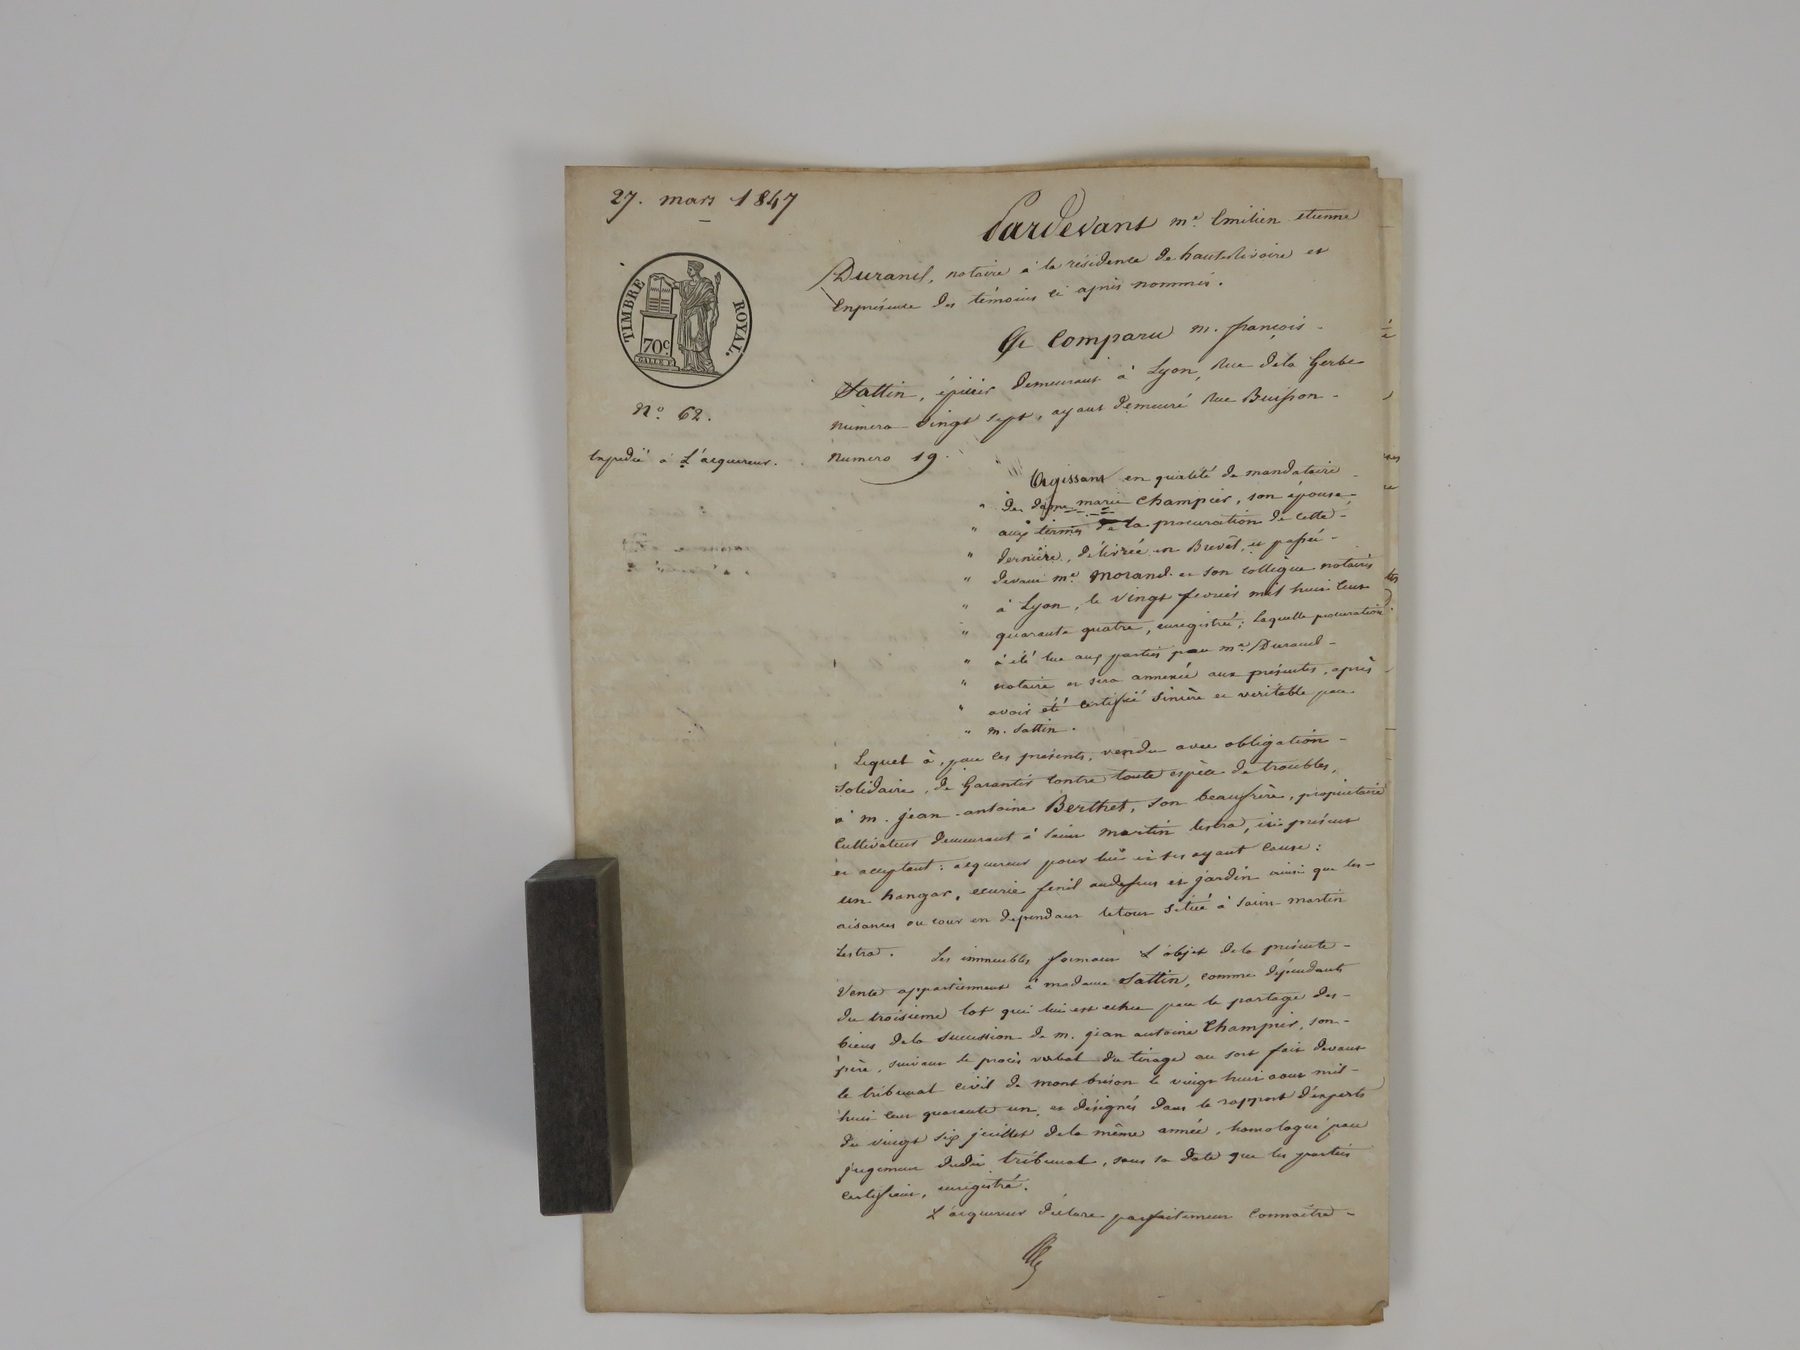 27. mars 1847
Pardevant me. Emilien etienne
Durand, notaire à la résidence de hauterivoire et
Enprésence des témoins ci après nommés.
TIMBRE ROYAL.
70c
No. 62.
Expedié à L'acquereur.
A Comparu m. françois
Sattin, épicier demeurant à Lyon, Rue dela Gerbe
numero vingt sept, ayant demeuré Rue Buisson
numero 19.
Agissant en qualité de mandataire
" de dame marie Champier, son épouse
" aux termes de la procuration de cette
" dernière, délivrée en Brevêt, et passée
" devant me. Morand et son collègue notaires
" à Lyon, le vingt fevrier mil huit cent
" quarante quatre, enregistrée; Laquelle procuration
" à été lue aux parties par me. Durand
" notaire et sera annexée aux présentes, après
" avoir été certifié sincère et veritable par
" m. Sattin.
Lequel à, par ces présentes, vendu avec obligation
solidaire, de Garantir contre toute espèce de troubles,
à m. jean antoine Berthet, son beaufrère, propriétaire
Cultivateur demeurant à Saint Martin Lestra, ici présent
et acceptant: acquereur pour lui et ses ayant cause:
un hangar, ecurie fenil audessus et jardin ainsi que les
aisances ou cour en dependant letout situé à Saint martin
Lestra. Les immeubles formant L'objet dela présente
Vente appartiennent à madame Sattin, comme dépendants
du troisieme lot qui lui est echu par le partage des
biens dela succession de m. jean antoine Champier, son
père, suivant le procès verbal du tirage au sort fait devant
le tribunal civil de montbrison le vingt huit aout mil
huit cent quarante un, et désignés dans le rapport d'experts
du vingt six juillet dela même année, homologué par
jugement dudit tribunal, sous sa date que les parties
certifient, enregistré.
L'acquereur déclare parfaitement Connaître